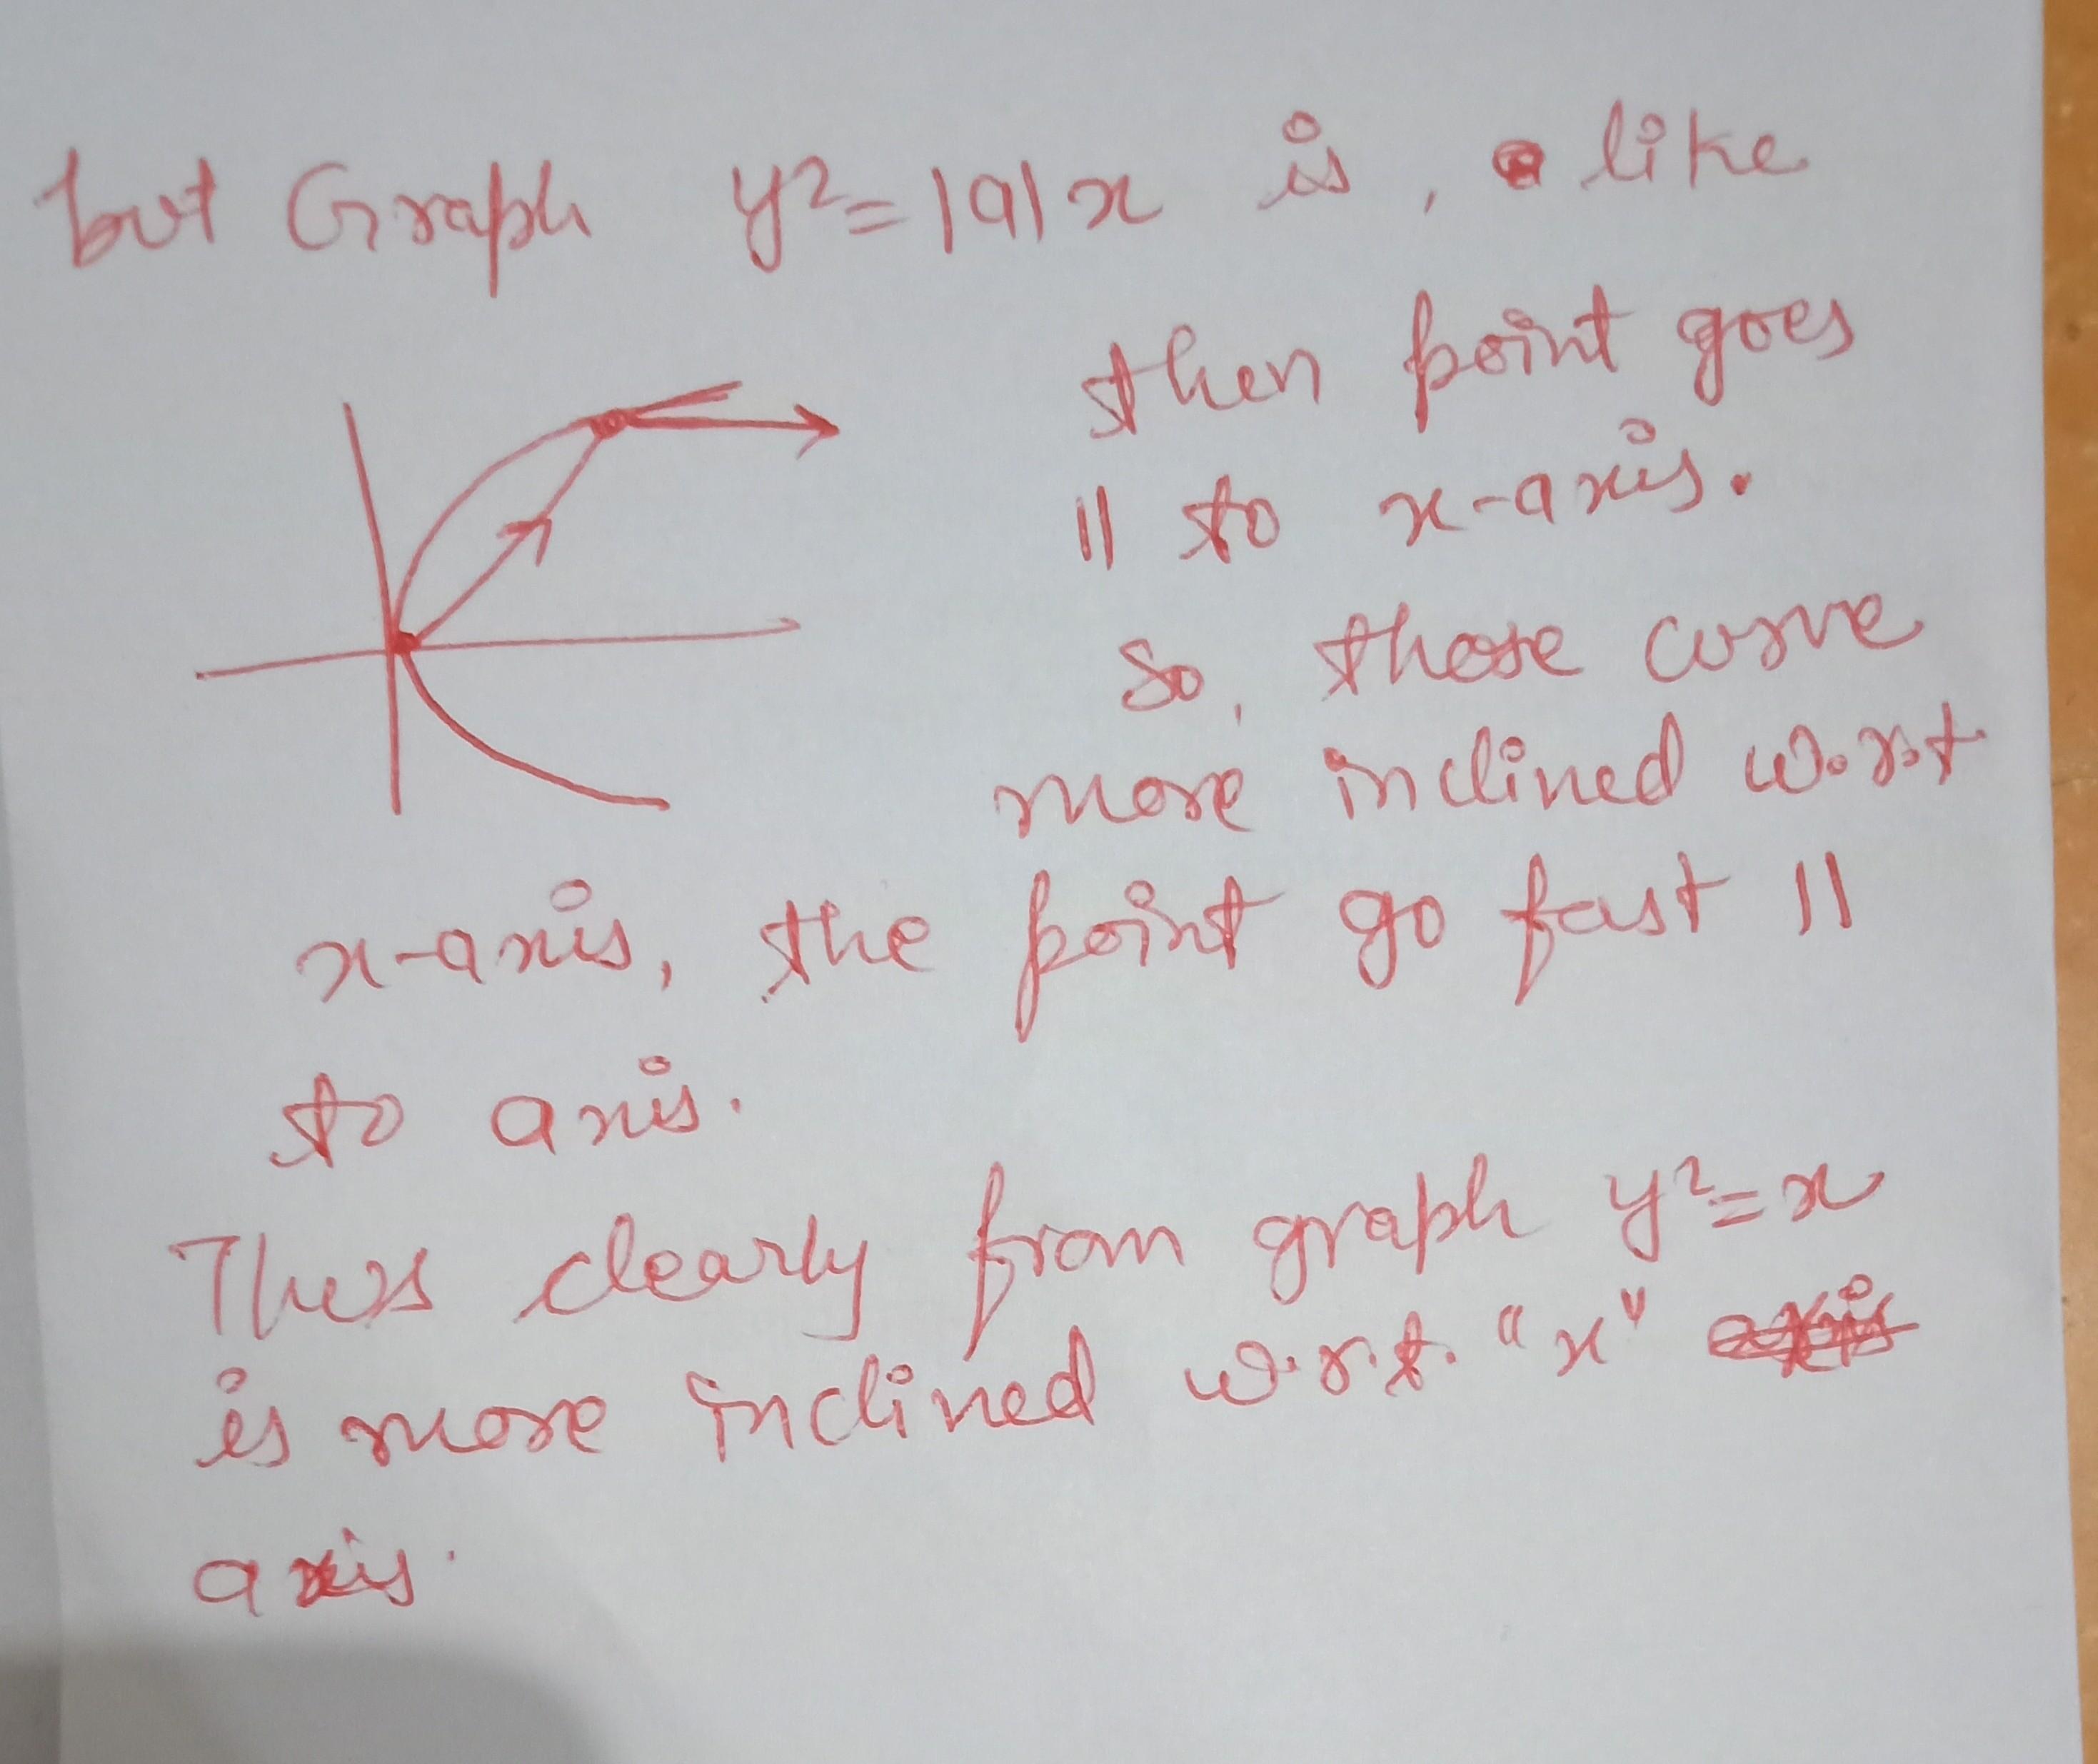 but Graph y²=|a|x is, like
then point goes
|| to x-axis.
So, those curve
more inclined w.r.t
x-axis, the point go fast ||
to axis.
Thus clearly from graph y²=x
is more inclined w.r.t. "x"
axis.